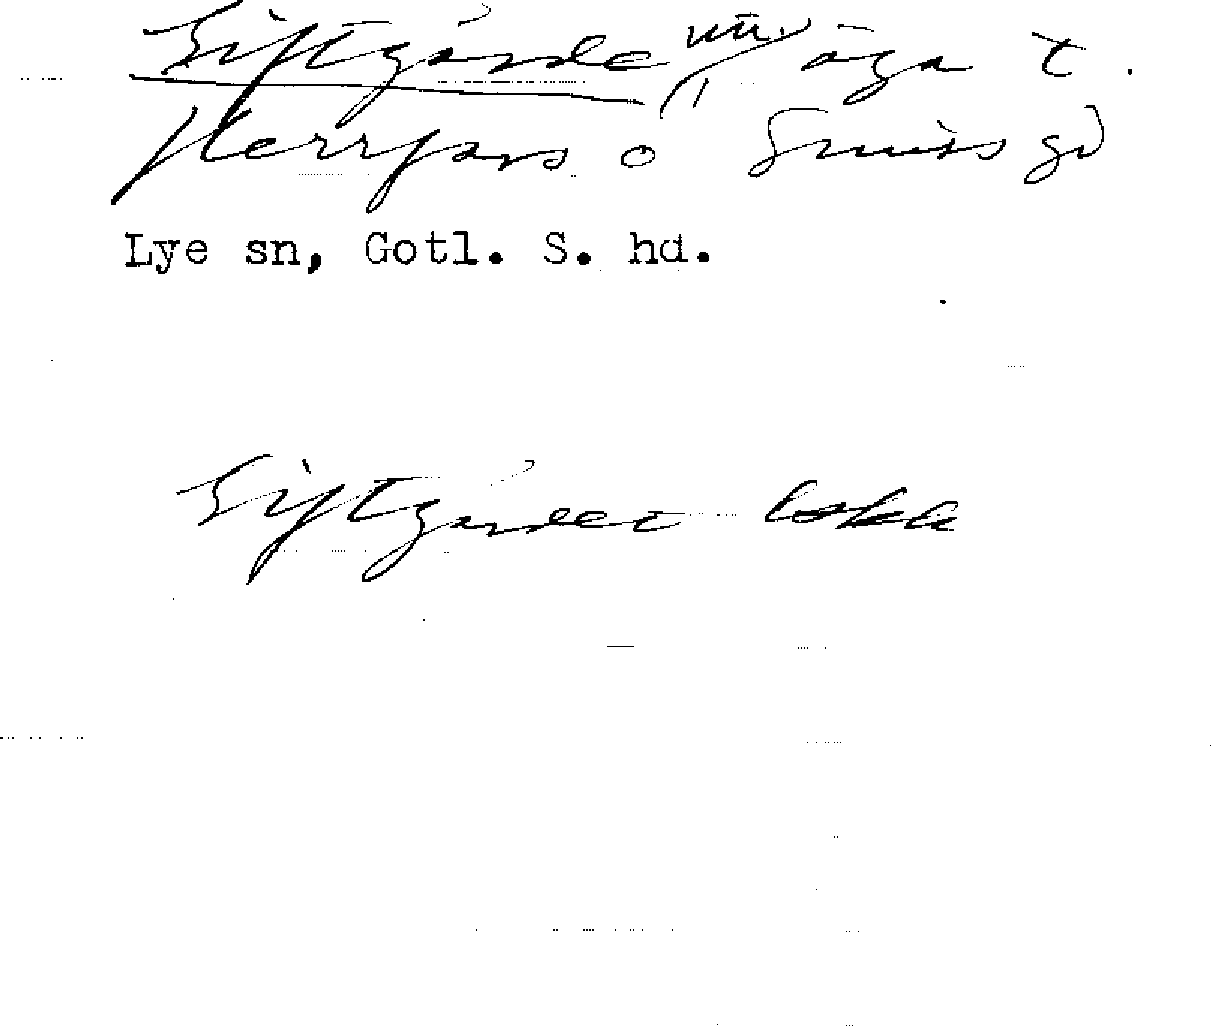 Siftgårde nu. äga t.
Herrfars o Smiss gd
Lye sn, Gotl. S. hd.
Siftgårdet